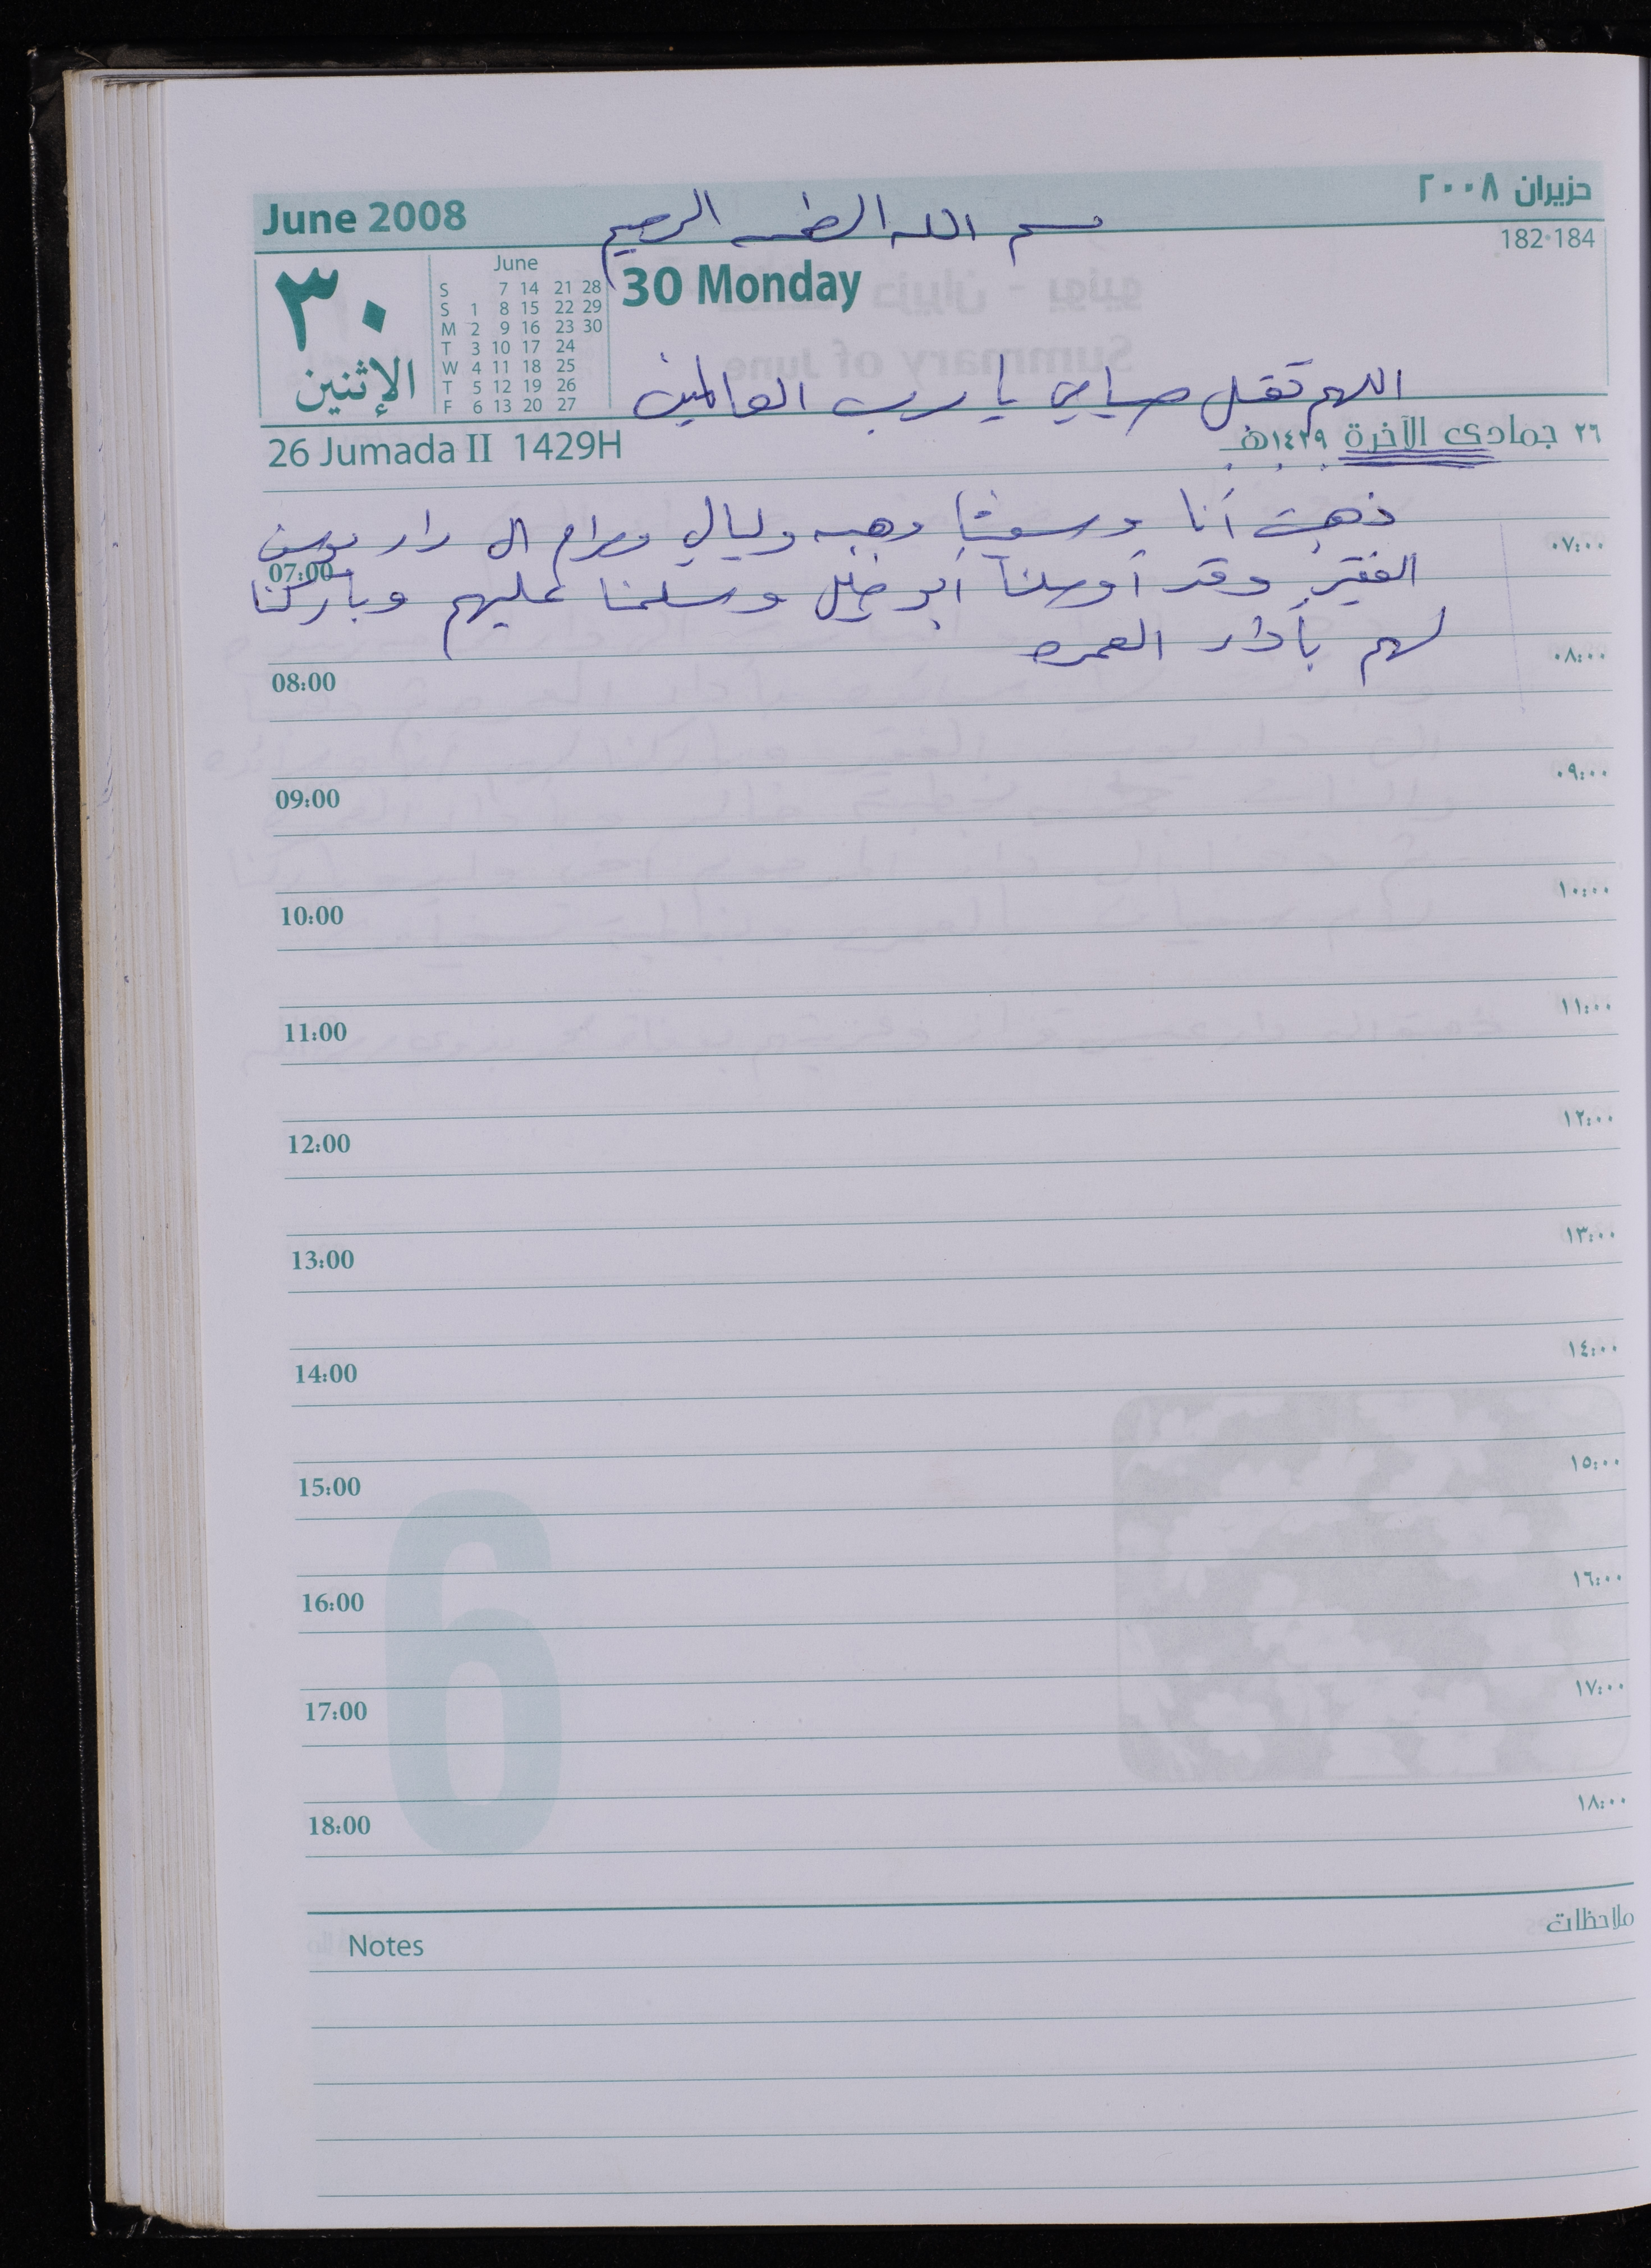 June 2008
حزيران ٢٠٠٨
بسم الله الرحمن الرحيم
182-184
٣٠
الإثنين
June
S 7 14 21 28
S 1 8 15 22 29
M 2 9 16 23 30
T 3 10 17 24
W 4 11 18 25
T 5 12 19 26
F 6 13 20 27
30 Monday
اللهم تقبل صيامي يا رب العالمين
26 Jumada II 1429H
٢٦ جمادى الآخرة ١٤٢٩هـ
ذهبت أنا و وهبه وليالي ومرام الى دار
07:00
٠٧:٠٠
الفقير وقد أوصلنا أبو خليل وسلمنا عليهم وباركنا
لهم بأداء العمره
08:00
٠٨:٠٠
09:00
٠٩:٠٠
10:00
١٠:٠٠
11:00
١١:٠٠
12:00
١٢:٠٠
13:00
١٣:٠٠
14:00
١٤:٠٠
15:00
١٥:٠٠
16:00
١٦:٠٠
17:00
١٧:٠٠
18:00
١٨:٠٠
6
Notes
ملاحظات